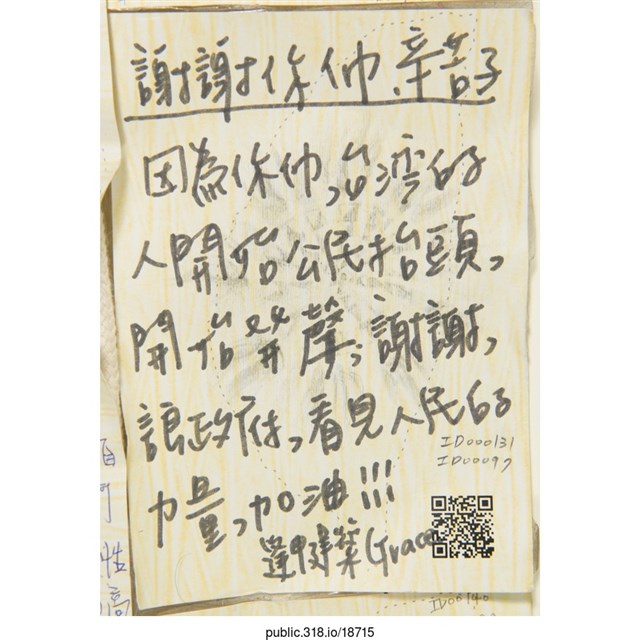 謝謝你們辛苦了
因為你們,台灣的
人開始公民抬頭,
開始發聲,謝謝,
讓政府,看見人民的
ID000131
ID00097
力量,加油!!!
逢甲建築 Grace
ID00140
public.318.io/18715